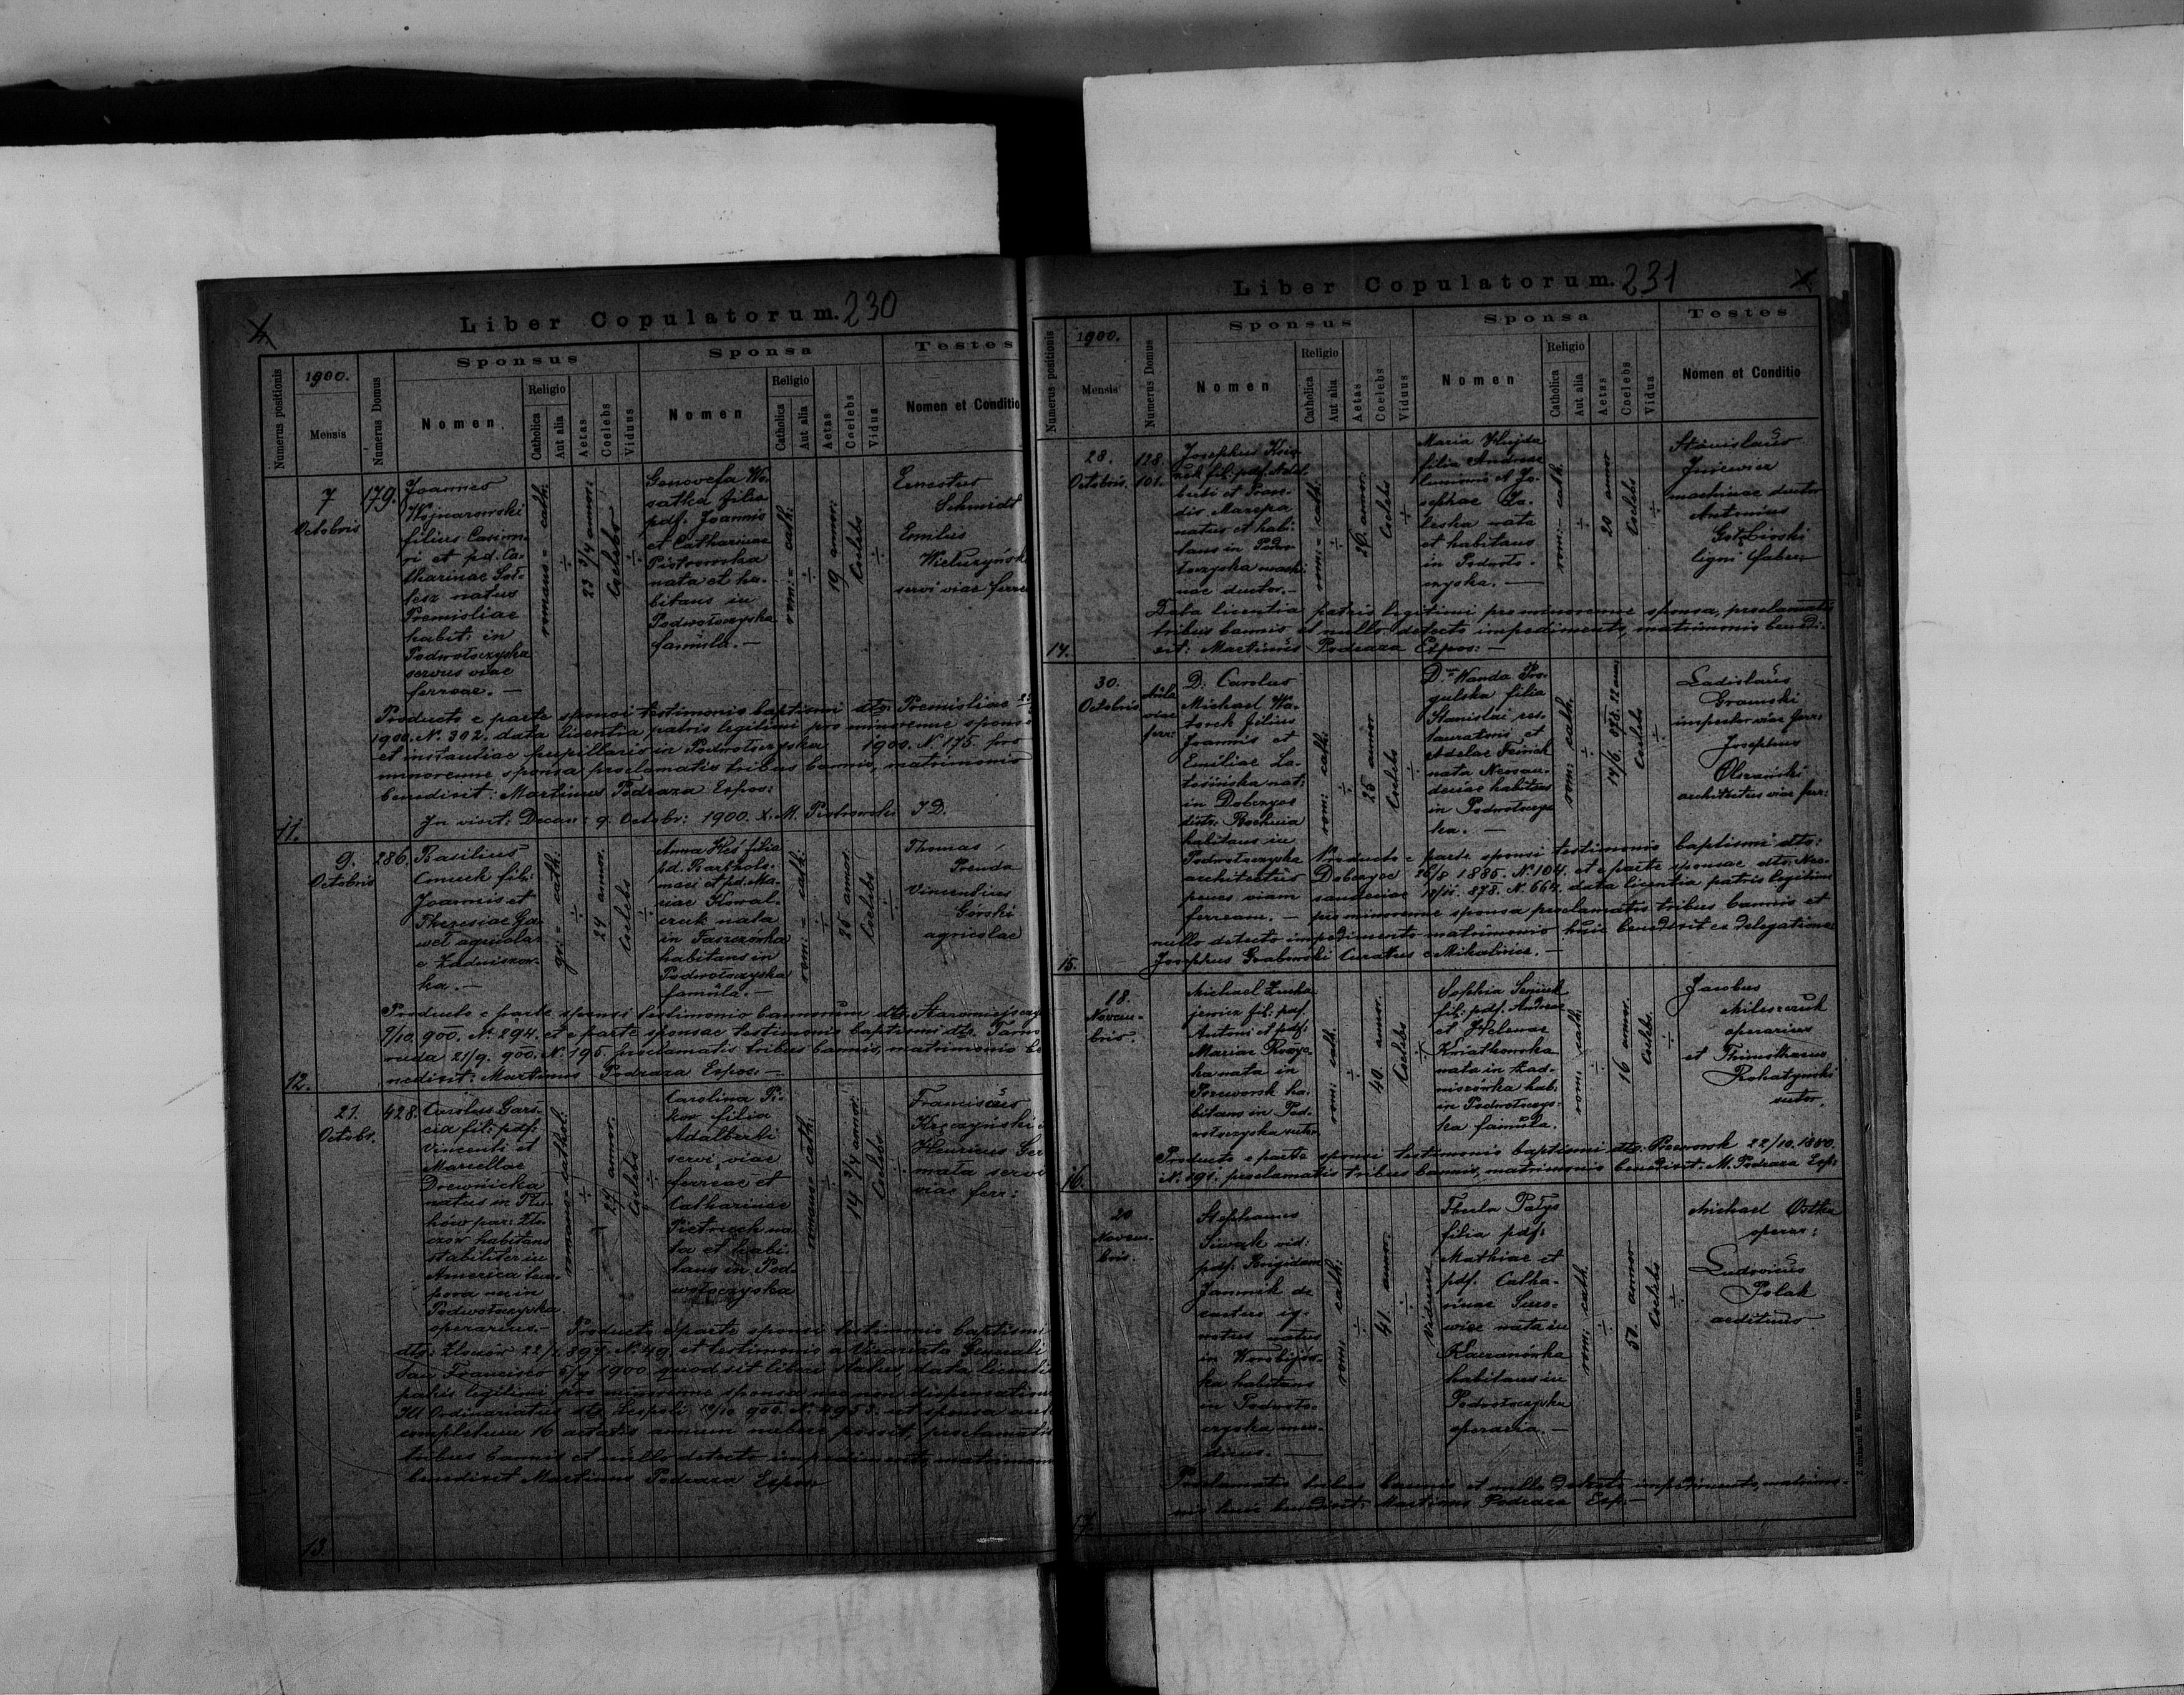 Liber Copulatorum. 230
Numerus positionis
1900.
Mensis
Numerus Domus
Sponsus
Nomen
Religio
Catholica
Aut alia
Aetas
Coelebs
Viduus
Sponsa
Nomen
Religio
Catholica
Aut alia
Aetas
Coelebs
Vidua
Testes
Nomen et Conditio
11.
7
Octobris
179.
Joannes
Wojnarowski
filius Casimi-
ri et pd. Ca-
tharinae Soł-
tész natus
Premisliae
habit: in
Podwołoczyska
servus viae
ferreae. —
romano - cath:
÷
23 3/4 annor:
Coelebs
÷
Genovefa Wo-
satka filia
pdf. Joannis
et Catharinae
Piotrowska
nata et ha-
bitans in
Podwołoczyska
famula. —
rom: - cath:
÷
19 annor:
Coelebs
÷
Ernestus
Schmidt
Emilius
servi viae ferre
Producto e parte sponsi testimonio baptismi dto: Premisliae
1900. N. 302. data licentia patris legitimi pro minorenne sponso
et instantiae pupillaris in Podwołoczyska 1900. N. 175. pro
minorenne sponsa proclamatis tribus bannis, matrimonio
benedixit: Martinus Podraza Expos:
In visit: Decan: 9. Octobr: 1900. X. M. Piotrowski J D.
12.
9.
Octobris
286.
Basilius
fil:
Joannis et
Theresiae Ga-
weł agricola
e Zadniszow-
ka. —
gr: - cath:
÷
24 annor.
Coelebs
Anna Kłeś filia
pd. Bartholo-
maei et pd. Ma-
riae Kowal-
czuk nata
in Faszczówka
habitans in
Podwołoczyska
famula. —
rom: - cath:
÷
25 annor.
Coelebs
÷
Thomas
Prenda
Vincentius
Górski
agricolae
Producto e parte sponsi testimonio bannorum dto. Staromiejszczy
7/10. 900. N. 294. et e parte sponsae testimonio baptismi dto. Tarno
ruda 21/9. 900. N. 195. proclamatis tribus bannis, matrimonio be
nedixit: Martinus Podraza Expos: —
13.
21.
Octobr.
428.
Carolus Gars-
cia fil: pdf:
Vincenti et
Marcellae
Drewnicka
natus in
par: Zło-
czow habitans
stabiliter in
America tem-
pora nunc in
Podwołoczyska
operarius. —
romano - cathol:
÷
24 annor.
Coelebs
÷
Carolina Pi-
kor filia
Adalberti
servi viae
ferreae et
Catharinae
Pietruch na-
ta et habi-
tans in Pod-
wołoczyska
romano cath:
÷
14 3/4 annor.
Coelebs
÷
Franciscus
Kręczyński
Henricus Ger
mata servi
viae ferr:
Producto e parte sponsi testimonio baptismi
dto: Złoczów 897. N. 49 et testimonio a Vicariatu Generali
San Francisco 1900 quod sit liberi status, data licenti
patris legitimi pro minorenne sponsa nec non dispensatione
Ill Ordinariatus dto. Leopoli 10/10 900. N. 4953. ut sponsa ante
completum 16 aetatis annum nubere possit, proclamatis
tribus bannis et nullo detecto impedimento, matrimoni
benedixit Martinus Podraza Expos:
Liber Copulatorum. 231
Numerus positionis
1900.
Mensis
Numerus Domus
Sponsus
Nomen
Religio
Catholica
Aut alia
Aetas
Coelebs
Viduus
Sponsa
Nomen
Religio
Catholica
Aut alia
Aetas
Coelebs
Vidua
Testes
Nomen et Conditio
14.
28.
Octobris.
128.
101.
Josephus
fil: pdf. Adal-
berti et Fran-
cis. Mazepa
natus et habi-
tans in Podwo-
łoczyska machi-
nae ductor. —
rom: - cath:
÷
26 annor.
Coelebs
÷
Maria Hujda
filia Andreae
et Jo-
sephae Za-
leska nata
et habitans
in Podwoło-
czyska. —
rom: cath.
÷
20 annor
Coelebs
÷
Stanislaus
Juriewicz
machinae ductor
Antonius
ligni faber
Data licentia patris legitimi pro minorenne sponsa, proclamatis
tribus bannis et nullo detecto impedimento, matrimonio benedi-
xit: Martinus Podraza Expos: —
15.
30.
Octobris
Aula
viae
ferr:
D. Carolus
Michael Wa-
torek filius
Joannis et
Emiliae La-
tosińska nat:
in Dobczyce
distr: Bochnia
habitans in
Podwołoczyska
architectus
penes viam
ferream. —
rom: cath:
÷
25 annor
Coelebs
÷
D.na Wanda Pro-
gulska filia
Stanislai res-
tauratoris et
Adelae Feinich
nata Neosan-
deciae habitans
in Podwołoczys-
ka. —
rom: cath:
÷
14/6. 878. 22 annor
Coelebs
÷
Ladislaus
Gramski
inspector viae ferr:
Josephus
Olszański
architectus viae ferr:
Producto e parte sponsi testimonio baptismi dto:
Dobczyce 26/8 1885. N. 104. et e parte sponsae dto. Neo-
sandeciae 878. N. 664. data licentia patris legitimi
pro minorenne sponsa proclamatis tribus bannis et
nullo detecto impedimento matrimonio huic benedixit ex delegatione
Josephus Grabowski Curatus e Mikulińce. —
16.
18.
Novem-
bris.
Michael Zucha-
jewicz fil: pdf.
Antoni et pdf:
Mariae
nata in
Przeworsk ha-
bitans in Pod-
wołoczyska sutor
rom: cath.
÷
40 annor.
Coelebs
÷
Sophia Seniuk
fil: pdf. Andreae
et Helenae
Kwiatkowska
nata in Zad-
niszówka hab:
in Podwołoczys-
ka famula.
rom: cath:
÷
16 annor.
Coelebs.
÷
Jacobus
operarius
et Thimotheus
Rohatynski
sutor.
Producto e parte sponsi testimonio baptismi dto. Przeworsk 22/10. 1860.
N. 191. proclamatis tribus bannis, matrimonio benedixit M. Podraza Exp:
17.
20
Novem-
bris.
Stephanus
Siwak vid:
pdf. Brigidam
Jannik de
caetero ig-
notus natus
in Worobijów-
ka habitans
in Podwoło-
czyska men-
dicus. —
rom: cath:
÷
41. annor.
÷
Viduus
Thecla Patys
filia pdf:
Mathiae et
pdf. Catha-
rinae Suro-
wiec nata in
Kaczanówka
habitans in
Podwołoczyska
operaria. —
rom: cath.
÷
50. annor
Coelebs
÷
Michael Ostka
operar:
Ludovicus
Polak
aedituus
Proclamatis tribus bannis et nullo detecto impedimento, matrimo-
nio huic benedixit: Martinus Podraza Exp: —